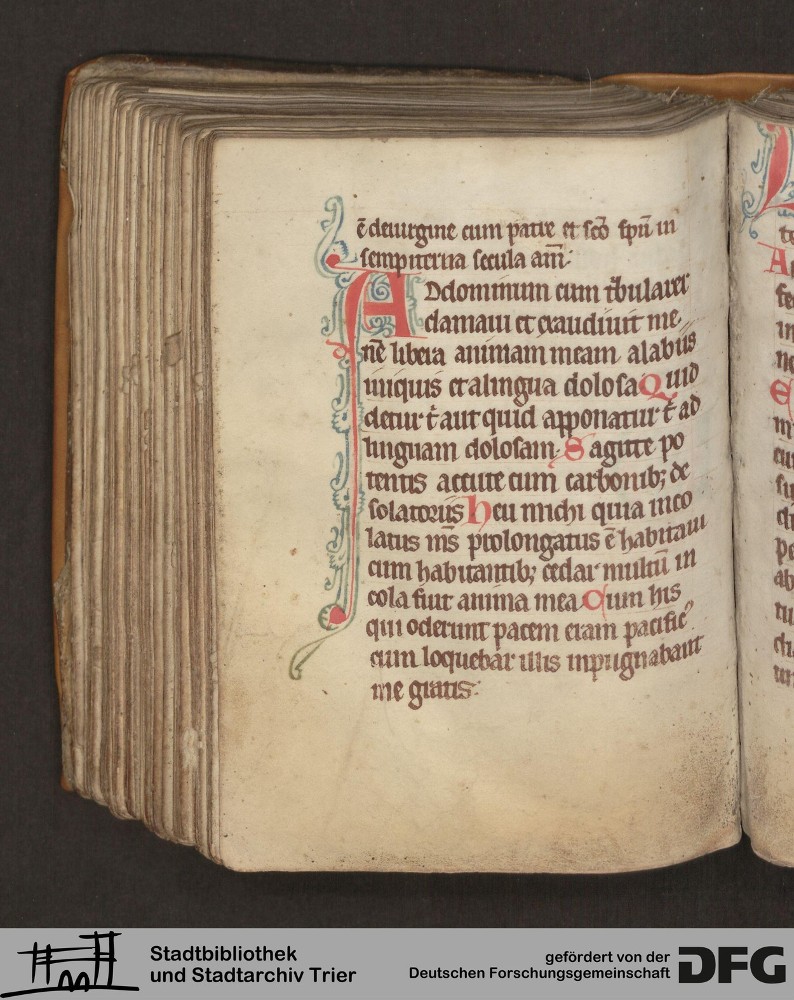 ē deuirgine cum patre et sc̄o sp̄u in
sempiterna secula am̄.
ADdominum cum t̄bularer
clamaui et exaudiuit me.
nē libera animam meam alabiis
iniquis et alingua dolosa Quid
detur t̄ aut quid apponatur t̄ ad
linguam dolosam. Sagitte po
tentis accute cum carbonib; de
solatoriis Heu michi quia inco
latus ms̄ prolongatus ē habitaui
cum habitantib; cedar multū in
cola fuit anima mea Cum his
qui oderunt pacem eram pacific᾽
cum loquebar illis inpugnabant
me gratis.
Stadtbibliothek
und Stadtarchiv Trier
gefördert von der
Deutschen Forschungsgemeinschaft
DFG